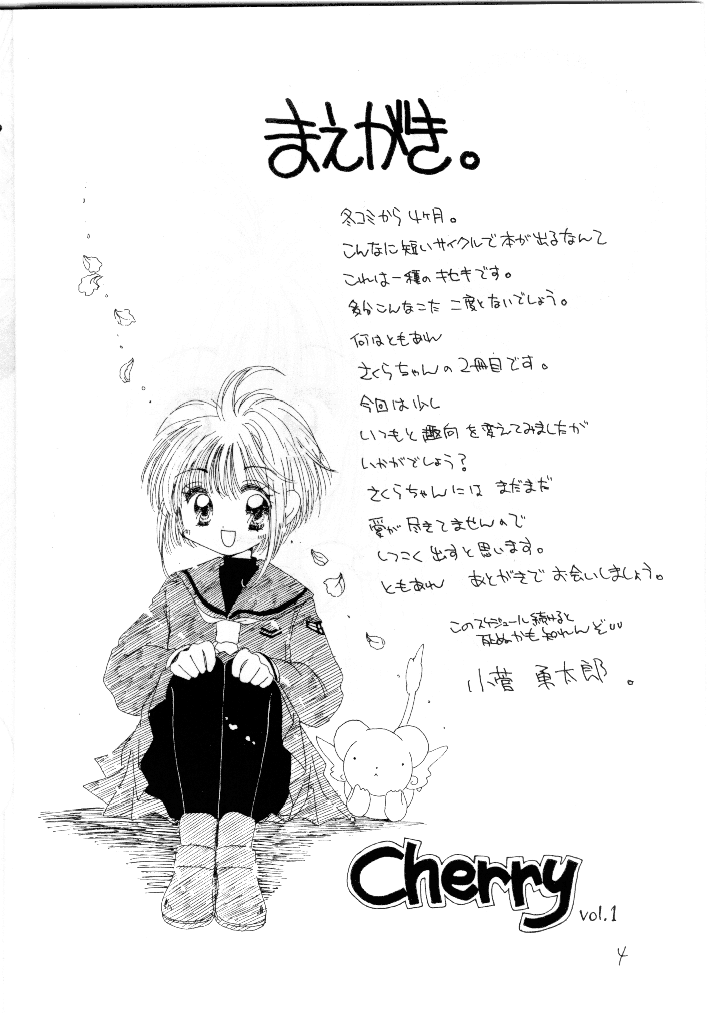 まえがき。
冬コミから4ヶ月。
こんなに短いサイクルで本が出るなんて
これは一種のキセキです。
多分こんなこた二度とないでしょう。
何はともあれ
さくらちゃんの2冊目です。
今回は少し
いつもと趣向を変えてみましたが
いかがでしょう?
さくらちゃんにはまだまだ
愛が尽きてませんので
しつこく出すと思います。
ともあれ あとがきでお会いしましょう。
このスケジュール続けると
死ぬかも知れんぞ
小菅 勇太郎。
Cherry
vol.1
4